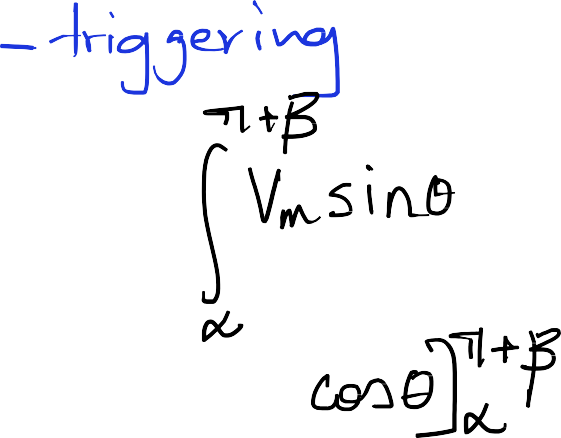 - triggering
π+β
∫ Vm sinθ
α
cosθ]π+β
α